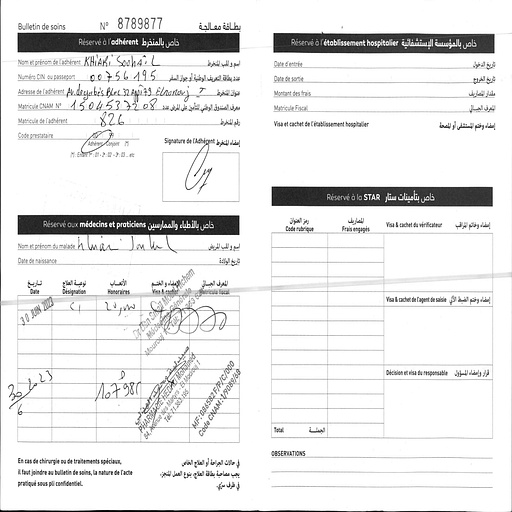 Bulletin de soins N° 8789877 بطاقة معالجة
Réservé à l'adhérent خاص بالمنخرط
Nom et prénom de l'adhérent KHIARI Souhail اسم و لقب المنخرط
Numéro CIN ou passeport 00756195 عدد بطاقة التعريف الوطنية أو جواز السفر
Adresse de l'adhérent عنوان المنخرط
Matricule CNAM N° 1504537208 معرف الصندوق الوطني للتأمين على المرض عدد
Matricule de l'adhérent 826 رقم المنخرط
Code prestataire
Adhérent Conjoint (*)
Signature de l'Adhérent إمضاء المنخرط
(*) Enfant 1er : 01 - 2e : 02 - 3e : 03 ... etc
Réservé aux médecins et praticiens خاص بالأطباء والممارسين
Nom et prénom du malade اسم و لقب المريض
Date de naissance تاريخ الولادة
تاريخ Date
نوعية العلاج Désignation
الأتعاب Honoraires
الإمضاء و الختم Visa & cachet
المعرف الجبائي Matricule fiscal
30 JUIN 2023
30 6 2023
107985
En cas de chirurgie ou de traitements spéciaux,
il faut joindre au bulletin de soins, la nature de l'acte
pratiqué sous pli confidentiel.
في حالات الجراحة أو العلاج الخاص
يجب مصاحبة بطاقة العلاج، بنوع العمل المنجز،
في ظرف سري.
Réservé à l'établissement hospitalier خاص بالمؤسسة الإستشفائية
Date d'entrée تاريخ الدخول
Date de sortie تاريخ الخروج
Montant des frais مقدار المصاريف
Matricule Fiscal المعرف الجبائي
Visa et cachet de l'établissement hospitalier إمضاء وختم المستشفى أو المصحة
Réservé à la STAR خاص بتأمينات ستار
رمز العنوان Code rubrique
المصاريف Frais engagés
Visa & cachet du vérificateur إمضاء وخاتم المراقب
Visa & cachet de l'agent de saisie
Décision et visa du responsable قرار وإمضاء المسؤول
Total الجملة
OBSERVATIONS